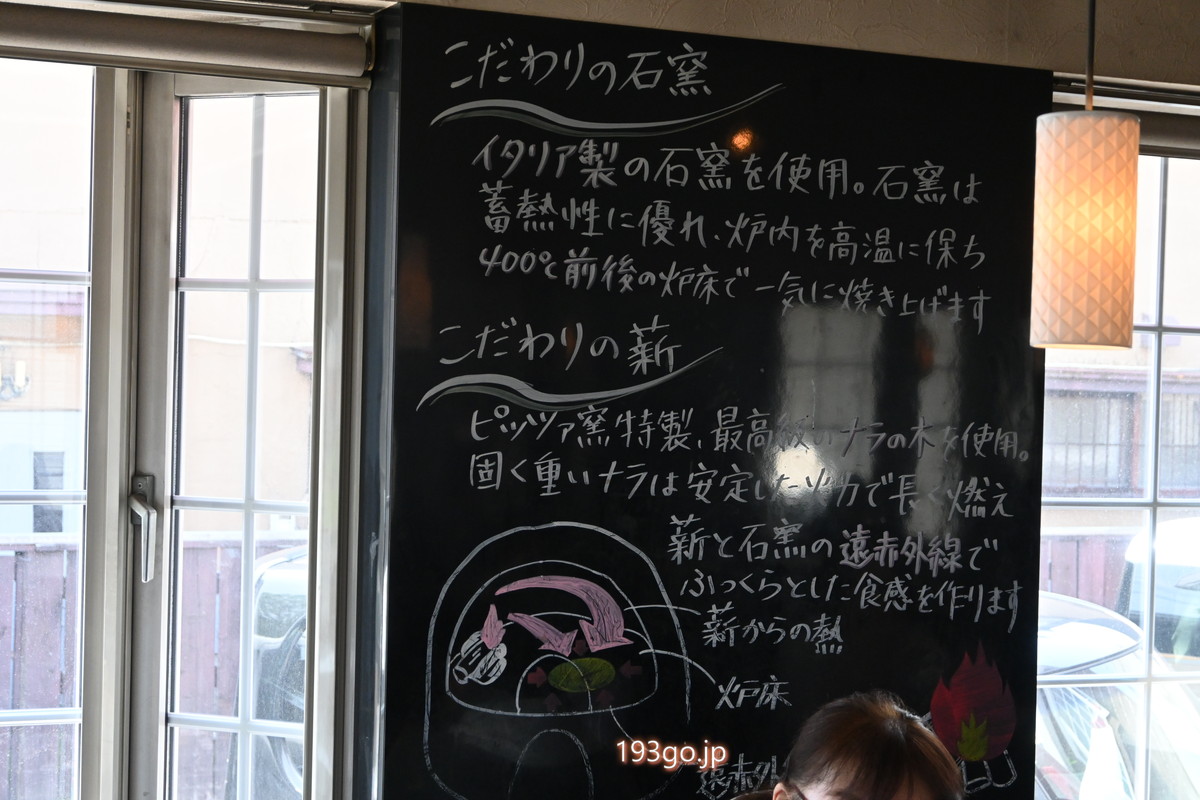 こだわりの石窯
イタリア製の石窯を使用。石窯は
蓄熱性に優れ、炉内を高温に保ち
400℃前後の炉床で一気に焼き上げます
こだわりの薪
ピッツァ窯特製、最高級のナラの木を使用。
固く重いナラは安定した火力で長く燃え
薪と石窯の遠赤外線で
ふっくらとした食感を作ります
薪からの熱
炉床
193go.jp
遠赤外